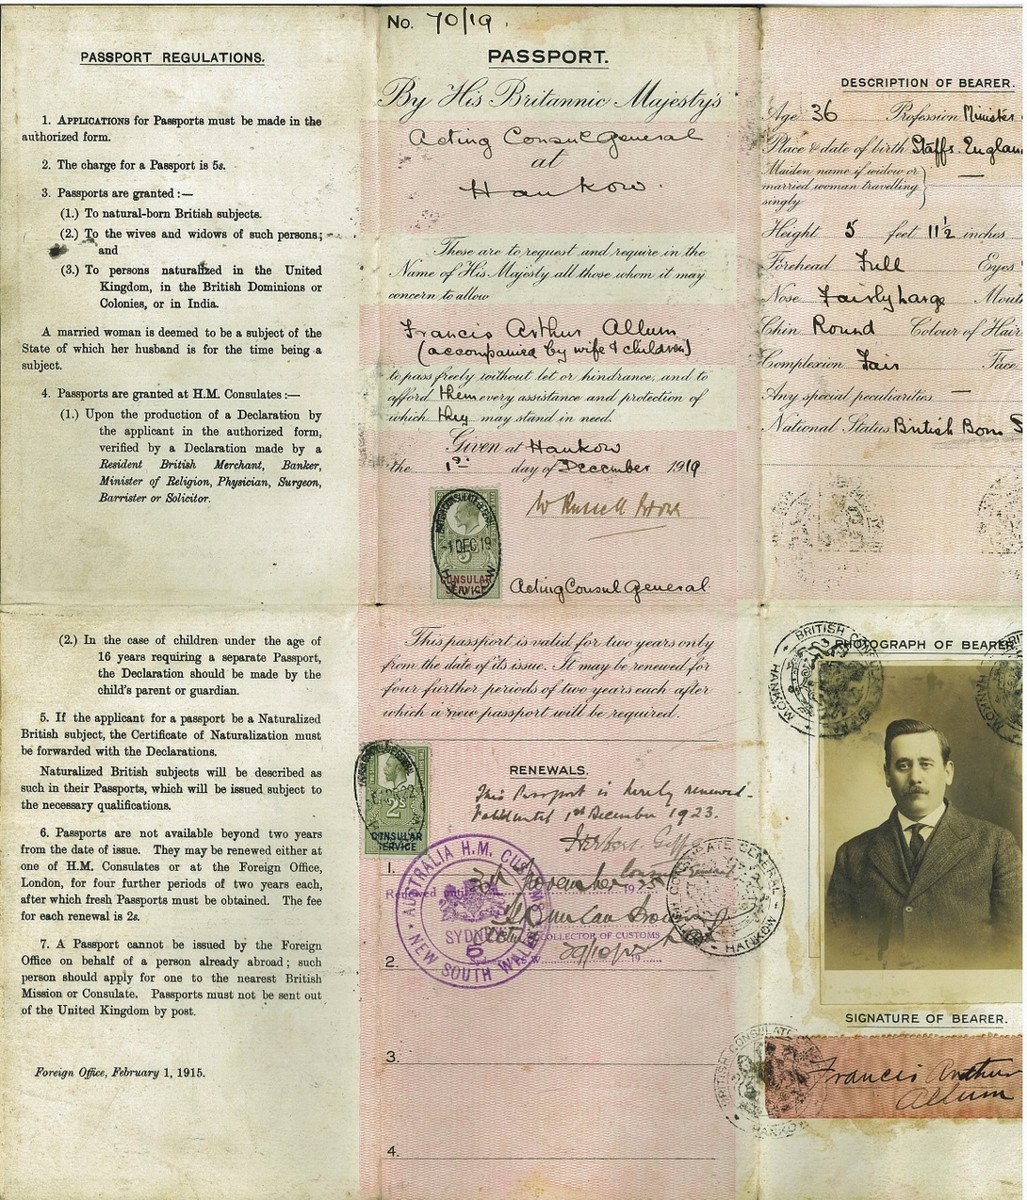 PASSPORT REGULATIONS.
1. APPLICATIONS for Passports must be made in the
authorized form.
2. The charge for a Passport is 5s.
3. Passports are granted :—
(1.) To natural-born British subjects.
(2.) To the wives and widows of such persons;
and
(3.) To persons naturalized in the United
Kingdom, in the British Dominions or
Colonies, or in India.
A married woman is deemed to be a subject of the
State of which her husband is for the time being a
subject.
4. Passports are granted at H.M. Consulates :—
(1.) Upon the production of a Declaration by
the applicant in the authorized form,
verified by a Declaration made by a
Resident British Merchant, Banker,
Minister of Religion, Physician, Surgeon,
Barrister or Solicitor.
(2.) In the case of children under the age of
16 years requiring a separate Passport,
the Declaration should be made by the
child's parent or guardian.
5. If the applicant for a passport be a Naturalized
British subject, the Certificate of Naturalization must
be forwarded with the Declarations.
Naturalized British subjects will be described as
such in their Passports, which will be issued subject to
the necessary qualifications.
6. Passports are not available beyond two years
from the date of issue. They may be renewed either at
one of H.M. Consulates or at the Foreign Office,
London, for four further periods of two years each,
after which fresh Passports must be obtained. The fee
for each renewal is 2s.
7. A Passport cannot be issued by the Foreign
Office on behalf of a person already abroad; such
person should apply for one to the nearest British
Mission or Consulate. Passports must not be sent out
of the United Kingdom by post.
Foreign Office, February 1, 1915.
No. 70/19.
PASSPORT.
By His Britannic Majesty's
Acting Consul General
at
Hankow.
These are to request and require in the
Name of His Majesty all those whom it may
concern to allow
Francis Arthur Allum
(accompanied by wife & children)
to pass freely without let or hindrance, and to
afford them every assistance and protection of
which they may stand in need.
Given at Hankow
the 1st day of December 1919
-1 DEC 19
CONSULAR
SERVICE
W Russell
Acting Consul General
This passport is valid for two years only
from the date of its issue. It may be renewed for
four further periods of two years each after
which a new passport will be required.
RENEWALS.
This Passport is hereby renewed.
Valid until 1st December 1923.
Herbert
2s
CONSULAR
SERVICE
1.
Renewed November 19
AUSTRALIA H.M. CUSTOMS
SYDNEY
5
NEW SOUTH WALES
COLLECTOR OF CUSTOMS
HANKOW
2.
3.
4.
DESCRIPTION OF BEARER.
Age 36 Profession Minister
Place & date of birth Staffs. Englan
Maiden name if widow or
married woman travelling
singly —
Height 5 feet 11½ inches
Forehead Full Eyes
Nose Fairly Large Mout
Chin Round Colour of Hair
Complexion Fair Face
Any special peculiarities —
National Status British Born S
PHOTOGRAPH OF BEARER
BRITISH CONSULATE
HANKOW
SIGNATURE OF BEARER.
BRITISH CONSULATE
HANKOW
Francis Arthur
Allum